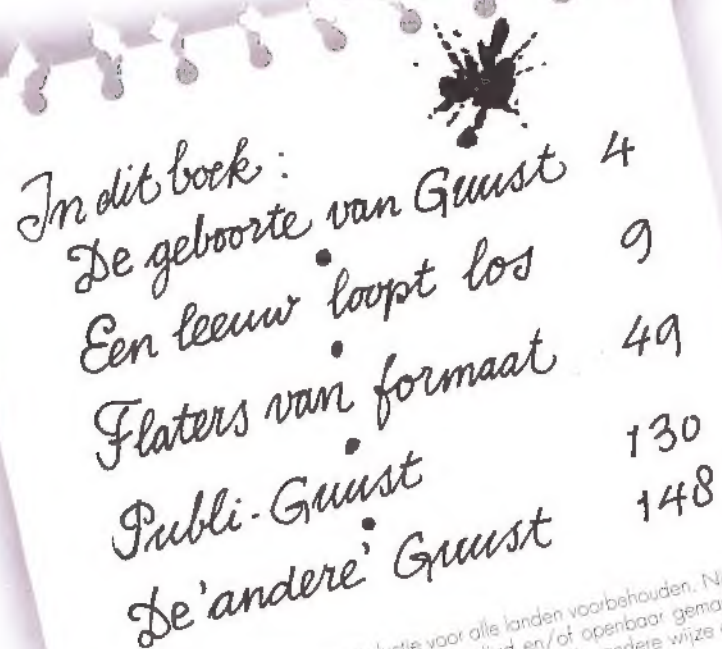 In dit boek:
De geboorte van Guust 4
Een leeuw loopt los 9
Flaters van formaat 49
Publi-Guust 130
De 'andere' Guust 148
voor alle landen voorbehouden.
en/of openbaar
andere wijze